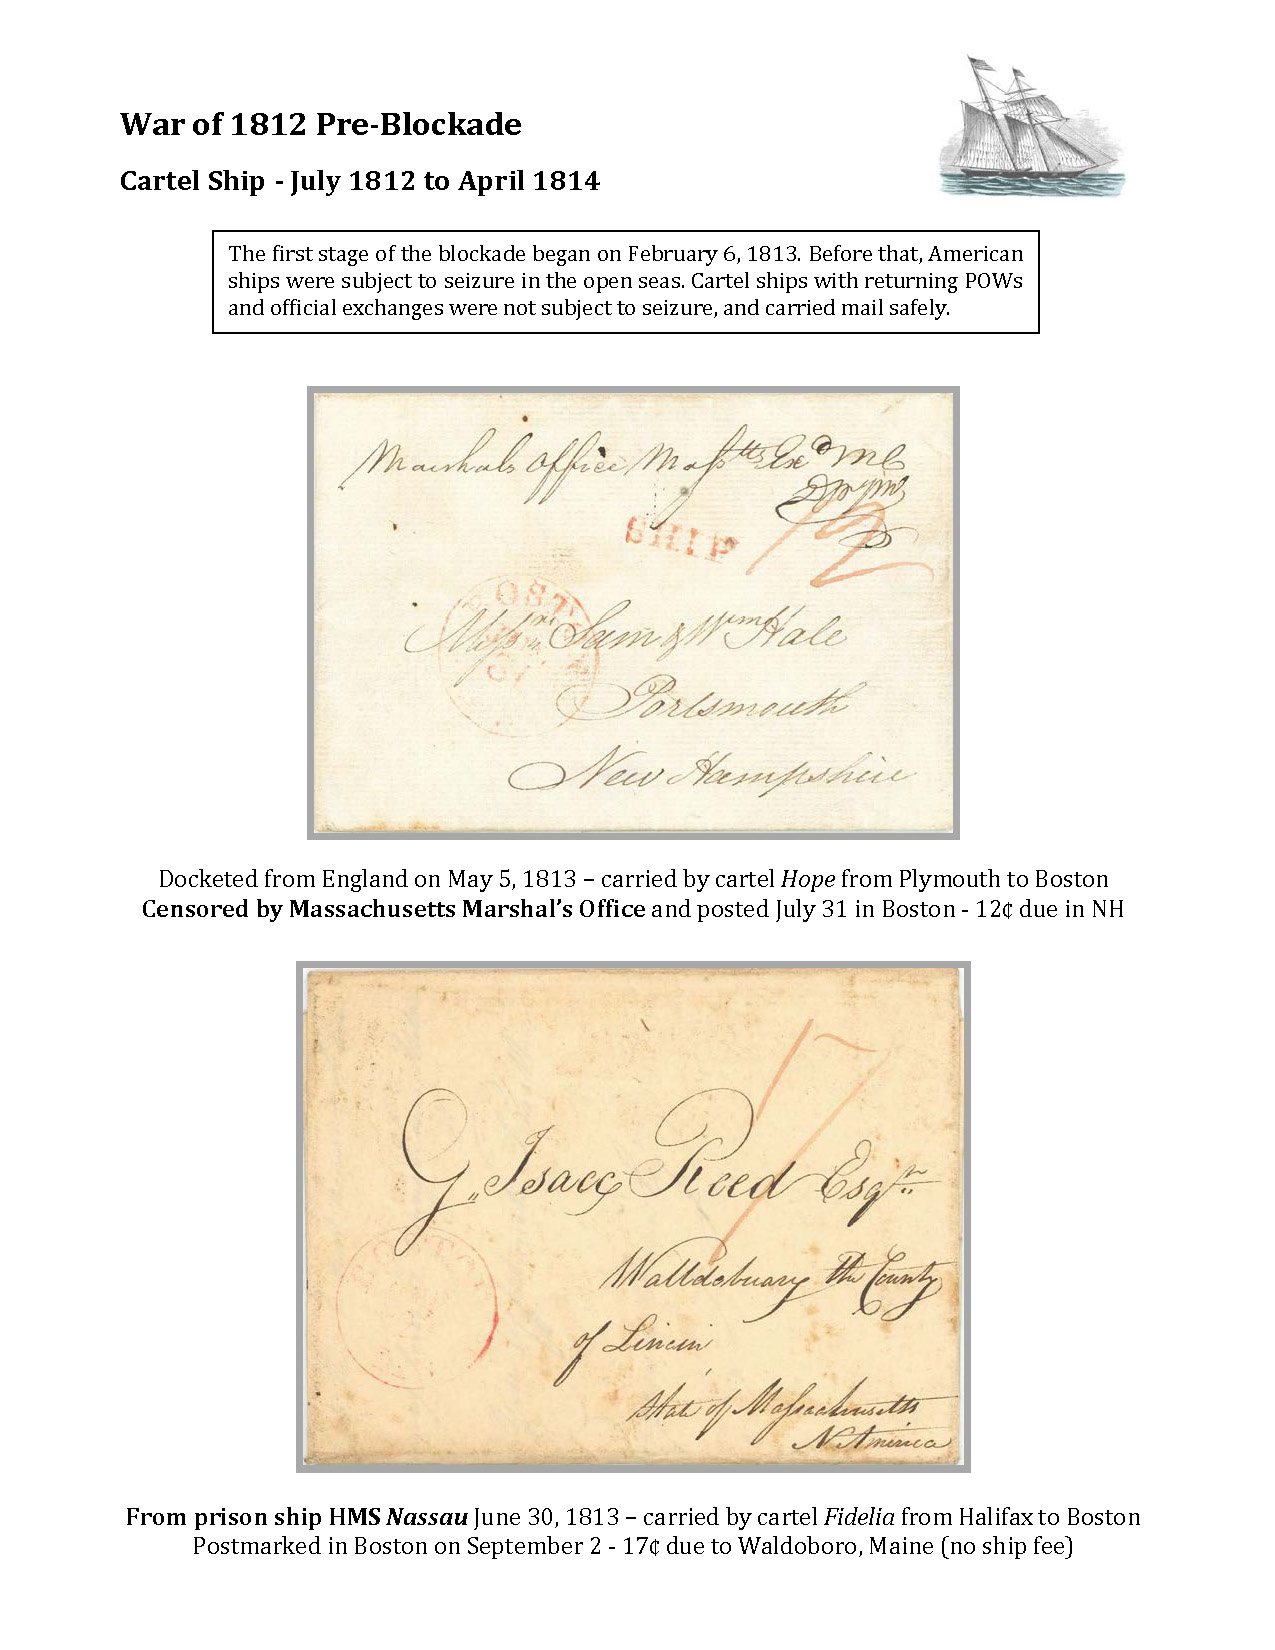 War of 1812 Pre-Blockade
Cartel Ship - July 1812 to April 1814
The first stage of the blockade began on February 6, 1813. Before that, American
ships were subject to seizure in the open seas. Cartel ships with returning POWs
and official exchanges were not subject to seizure, and carried mail safely.
Marshals Office Massts Exd
SHIP
12
Sam & Wm Hale
Portsmouth
New Hampshire
Docketed from England on May 5, 1813 – carried by cartel Hope from Plymouth to Boston
Censored by Massachusetts Marshal's Office and posted July 31 in Boston - 12¢ due in NH
17
Isacc Reed Esqr
Walldobuary the County
of Lincin
State of Massachusetts
N America
From prison ship HMS Nassau June 30, 1813 – carried by cartel Fidelia from Halifax to Boston
Postmarked in Boston on September 2 - 17¢ due to Waldoboro, Maine (no ship fee)